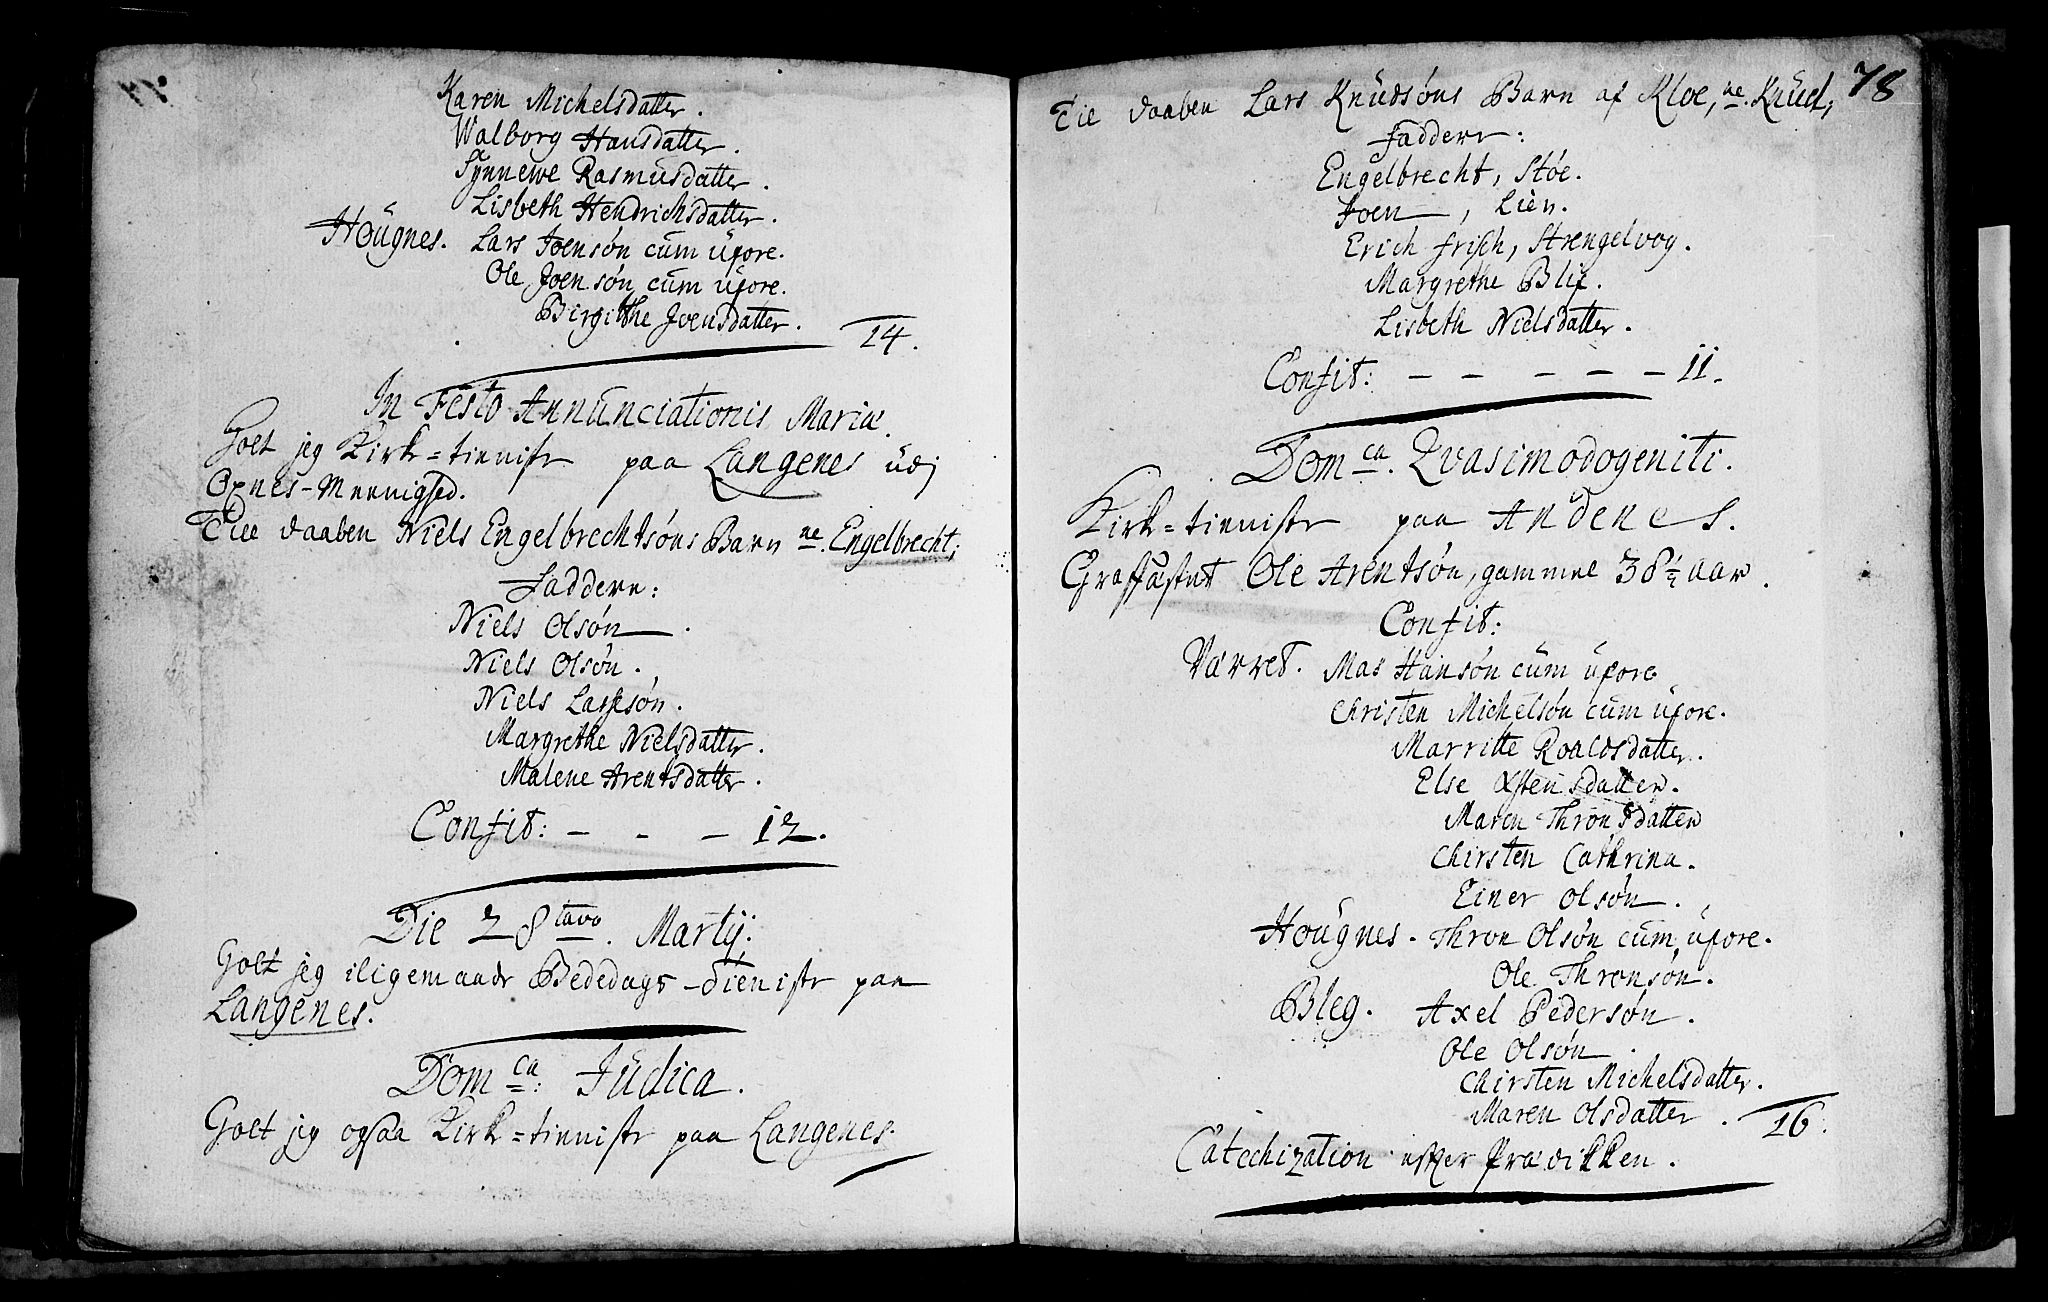 Karen Michelsdatter.
Walborg Hansdatter.
Synnewe Rasmusdatter.
Lisbeth Hendrichsdatter.
Hougnes. Lars Joensøn cum uxore.
Ole Joensøn cum uxore.
Birgithe Joensdatter.
14.
In Festo Annunciationis Mariæ.
Holt jeg Kirke=tieniste paa Langenes udj
Oxnes-Meenighed.
Till daaben Niels Engelbrechtsøns Barn ne. Engelbrecht;
Faddere:
Niels Olsøn.
Niels Olsøn.
Niels Larssøn.
Margrethe Nielsdatter.
Malene Arentsdatter.
Confit: - - - 12.
Die 28tavo. Martij.
Holt jeg iligemaade Bededags-tieniste paa
Langenes.
Domca: Judica.
Holt jeg ogsaa Kirke=tieniste paa Langenes.
78
Til daaben Lars Knudsøns Barn af Kloe, ne. Knud;
Faddere:
Engelbrecht, Støe.
Joen —, Lien.
Erich Frisch, Strengelvog.
Margrethe Blix.
Lisbeth Nielsdatter.
Confit: - - - - - 11.
Domca. Qvasimodogeniti.
Kirke=tieniste paa Andenes.
Graffæstet Ole Arentsøn, gammel 38½ aar.
Confit:
Værret. Mas Hansøn cum uxore
Christen Michelsøn cum uxore.
Marritte Roaldsdatter.
Else Østensdatter.
Maren Thronsdatter
Chirsten Cathrina.
Einer Olsøn.
Hougnes. Thron Olsøn cum uxore.
Ole Thronsøn.
Bleg. Axel Pedersøn.
Ole Olsøn.
Chirsten Michelsdatter.
Maren Olsdatter.
16.
Catechization efter Prædikken.